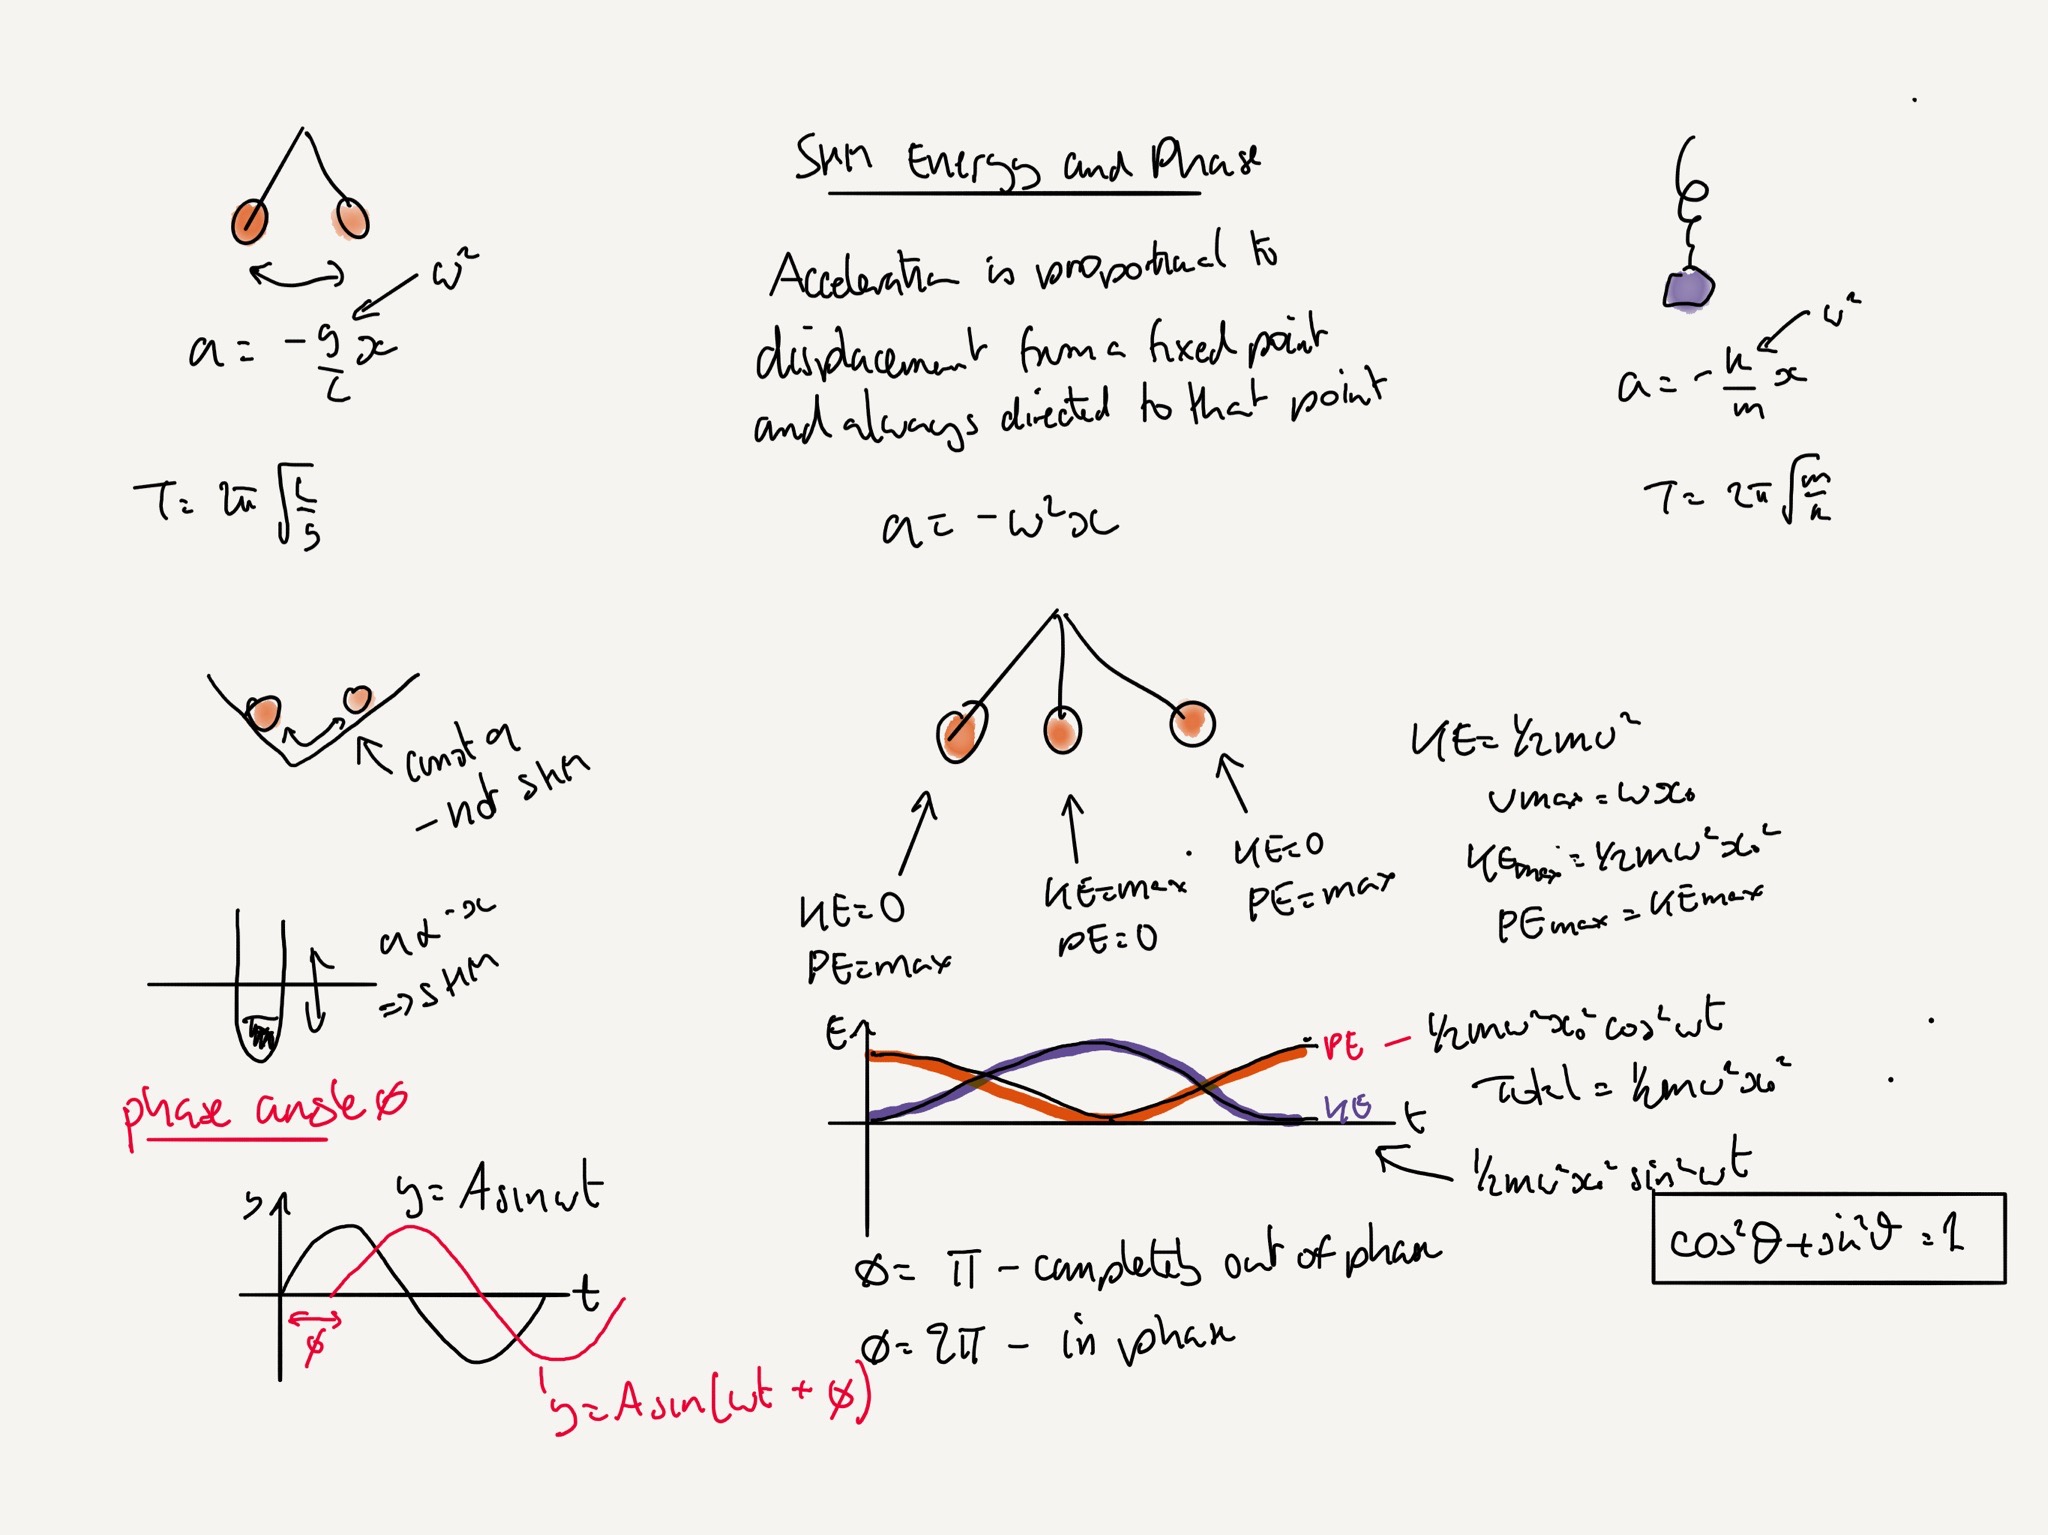 SHM Energy and Phase
Acceleration is proportional to
displacement from a fixed point
and always directed to that point
a = -ω²x
ω²
a = -g/L x
T = 2π √(L/g)
ω²
a = -k/m x
T = 2π √(m/k)
const a
- not SHM
a α -x
=> SHM
KE=0
PE=max
KE=max
PE=0
KE=0
PE=max
KE = 1/2mv²
vmax = ωx₀
KEmax = 1/2mω²x₀²
PEmax = KEmax
E
PE - 1/2mω²x₀² cos²ωt
Total = 1/2mω²x₀²
KE
t
1/2mω²x₀² sin²ωt
cos²θ + sin²θ = 1
ø = π - completely out of phase
ø = 2π - in phase
phase angle ø
y
y = A sinωt
t
ø
y = A sin(ωt + ø)